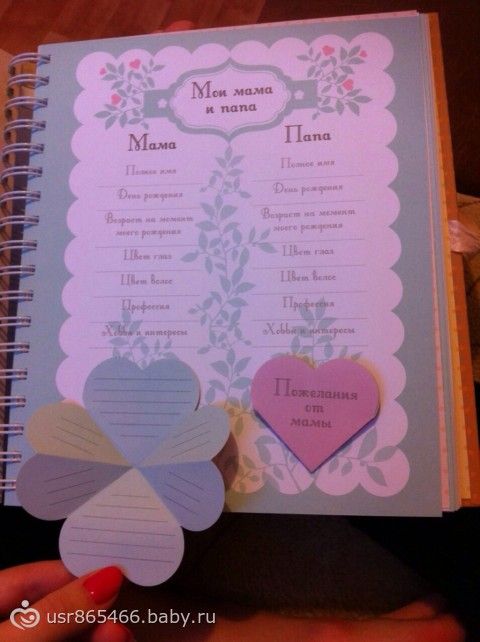 Мои мама
и папа
Мама
Полное имя
День рождения
Возраст на момент
моего рождения
Цвет глаз
Цвет волос
Профессия
Хобби и интересы
Папа
Полное имя
День рождения
Возраст на момент
моего рождения
Цвет глаз
Цвет волос
Профессия
Хобби и интересы
Пожелания
от
мамы
usr865466.baby.ru